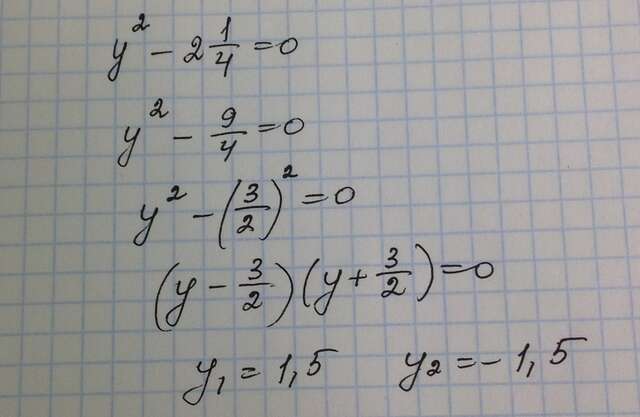 y² - 2 1/4 = 0
y² - 9/4 = 0
y² - (3/2)² = 0
(y - 3/2)(y + 3/2) = 0
y₁ = 1,5 y₂ = - 1,5